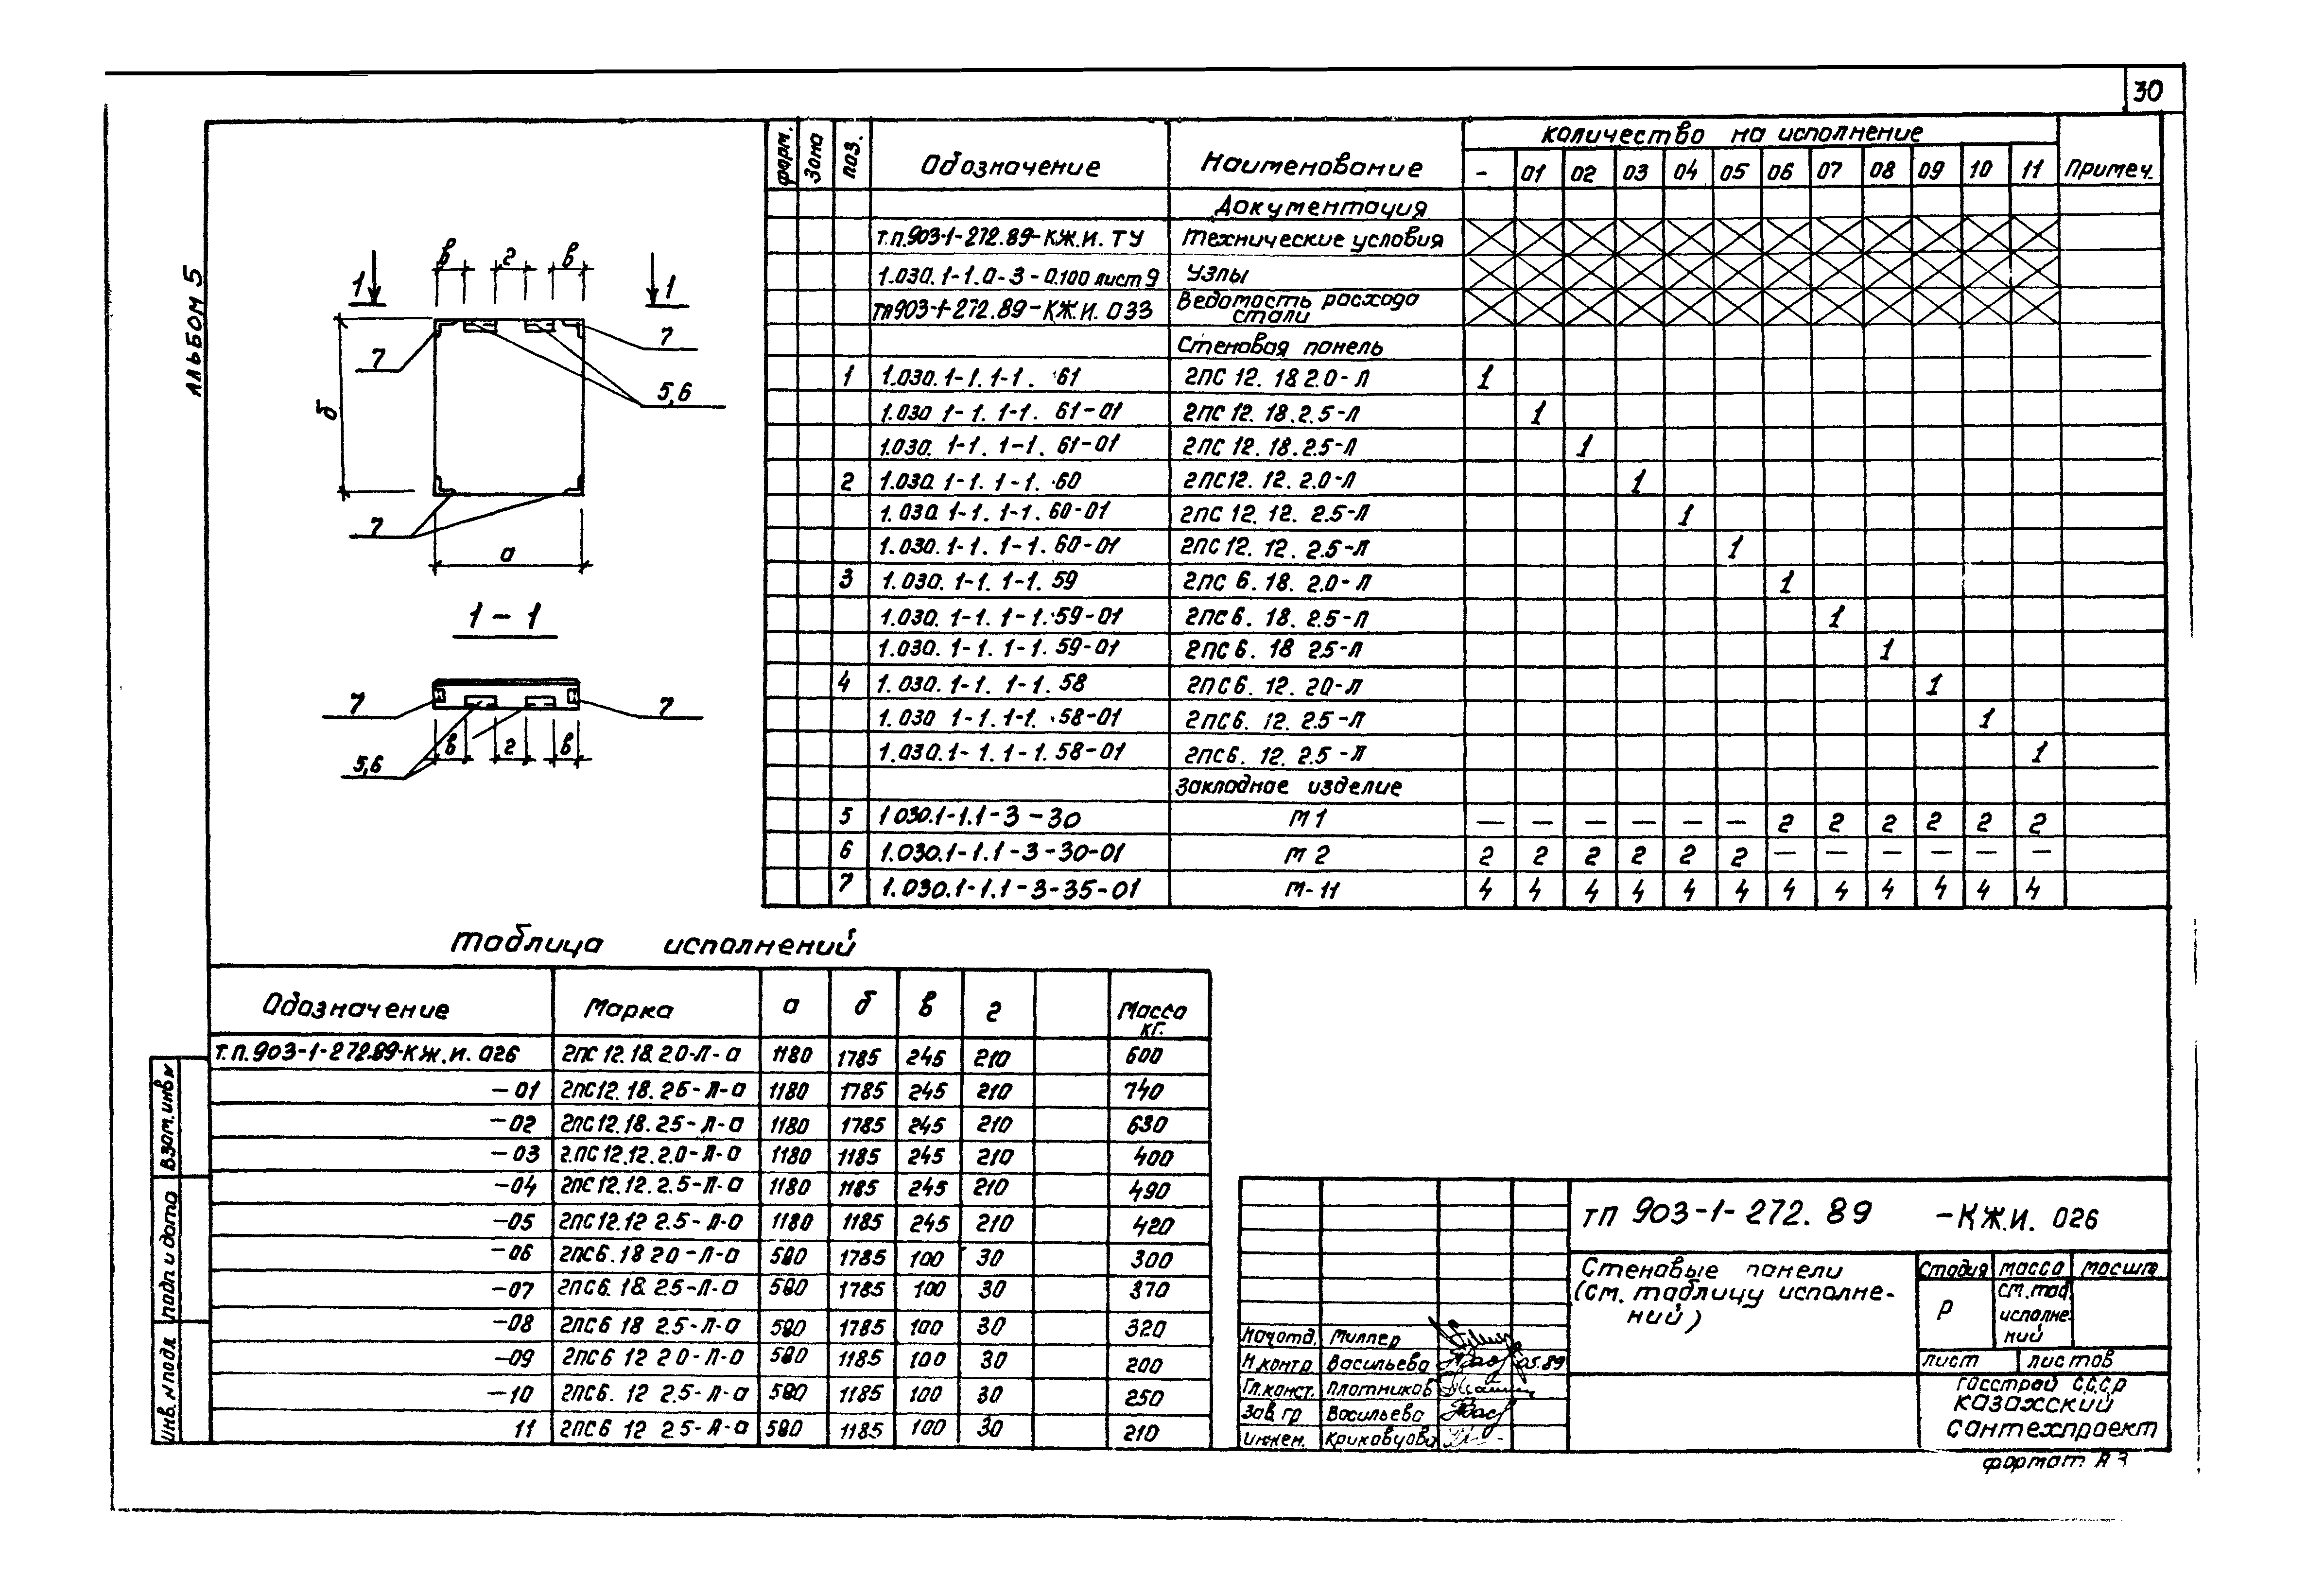 30
Альбом 5
в г в
1 1
7 7
5,6
б
7
а
1-1
7 7
в г в
5,6
форм. Зона поз. Обозначение Наименование Количество на исполнение Примеч.
- 01 02 03 04 05 06 07 08 09 10 11
Документация
т.п.903-1-272.89-КЖ.И. ТУ Технические условия
1.030.1-1.0-3-0.100 лист 9 Узлы
тп903-1-272.89-КЖ.И. 033 Ведомость расхода
стали
Стеновая панель
1 1.030.1-1.1-1. 61 2ПС 12. 18 2.0-Л 1
1.030 1-1. 1-1. 61-01 2ПС 12. 18.2.5-Л 1
1.030. 1-1. 1-1. 61-01 2ПС 12. 18.2.5-Л 1
2 1.030. 1-1. 1-1. 60 2ПС12. 12. 2.0-Л 1
1.030. 1-1. 1-1. 60-01 2ПС 12. 12. 2.5-Л 1
1.030. 1-1. 1-1. 60-01 2ПС 12. 12. 2.5-Л 1
3 1.030. 1-1. 1-1. 59 2ПС 6. 18. 2.0-Л 1
1.030. 1-1. 1-1. 59-01 2ПС 6. 18. 2.5-Л 1
1.030. 1-1. 1-1. 59-01 2ПС 6. 18 25-Л 1
4 1.030. 1-1. 1-1. 58 2ПС 6. 12. 20-Л 1
1.030 1-1. 1-1. 58-01 2ПС6. 12. 2.5-Л 1
1.030.1-1. 1-1. 58-01 2ПС6. 12. 2.5-Л 1
Закладное изделие
5 1 030.1-1.1-3-30 М 1 — — — — — — 2 2 2 2 2 2
6 1.030.1-1.1-3-30-01 М 2 2 2 2 2 2 2 — — — — — —
7 1.030.1-1.1-3-35-01 М-11 4 4 4 4 4 4 4 4 4 4 4 4
Таблица исполнений
Обозначение Марка а б в г Масса
кг.
т.п.903-1-272.89-КЖ.И. 026 2ПС 12.18.20-Л-а 1180 1785 245 210 600
-01 2ПС12.18.25-Л-а 1180 1785 245 210 740
-02 2ПС12.18.25-Л-а 1180 1785 245 210 630
-03 2.ПС12.12.2.0-Л-а 1180 1185 245 210 400
-04 2ПС12.12.2.5-Л-а 1180 1185 245 210 490
-05 2ПС12.12 2.5-Л-а 1180 1185 245 210 420
-06 2ПС6.18 20-Л-а 580 1785 100 30 300
-07 2ПС6.18.25-Л-а 580 1785 100 30 370
-08 2ПС6 18 2.5-Л-а 580 1785 100 30 320
-09 2ПС6 12 20-Л-а 580 1185 100 30 200
-10 2ПС6. 12 2.5-Л-а 580 1185 100 30 250
11 2ПС6 12 25-Л-а 580 1185 100 30 210
Взам.инв№
Подп и дата
Инв.№подл
тп 903-1-272.89 -КЖ.И. 026
Стеновые панели
(См. таблицу исполне-
ний)
Стадия масса масшт
Р см.таб.
исполне-
ний
лист листов
Госстрой С.С.С.Р
Казахский
Сантехпроект
Нач отд. Миллер
Н.контр Васильева 05.89
Гл.конст. Плотников
Зав гр Васильева
инжен. Криковцова
формат А3